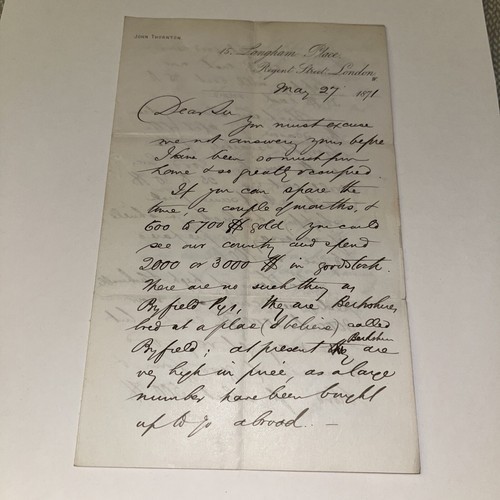 JOHN THORNTON.
15. Langham Place,
Regent Street, London,
May 27 1871.
Dear Sir
You must excuse
me not answering yours before
I have been so much from
home & so greatly occupied.
If you can spare the
time, a couple of months, &
600 to 700 $ gold you could
see our country and spend
2000 or 3000 $ in good stock.
There are no such thing as
Byfield Pigs, they are Berkshires
bred at a place (I believe) called
Byfield; at present Berkshires are
very high in price, as a large
number have been bought
up to go abroad. —